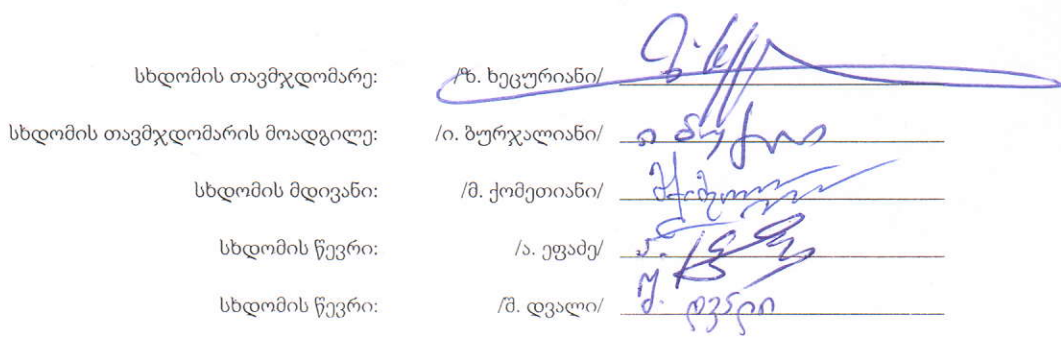 სხდომის თავმჯდომარე: /ზ. ხეცურიანი/
სხდომის თავმჯდომარის მოადგილე: /ი. ბურჯალიანი/
სხდომის მდივანი: /მ. ქომეთიანი/
სხდომის წევრი: /ა. ეფაძე/
სხდომის წევრი: /შ. დვალი/ შ. დვალი